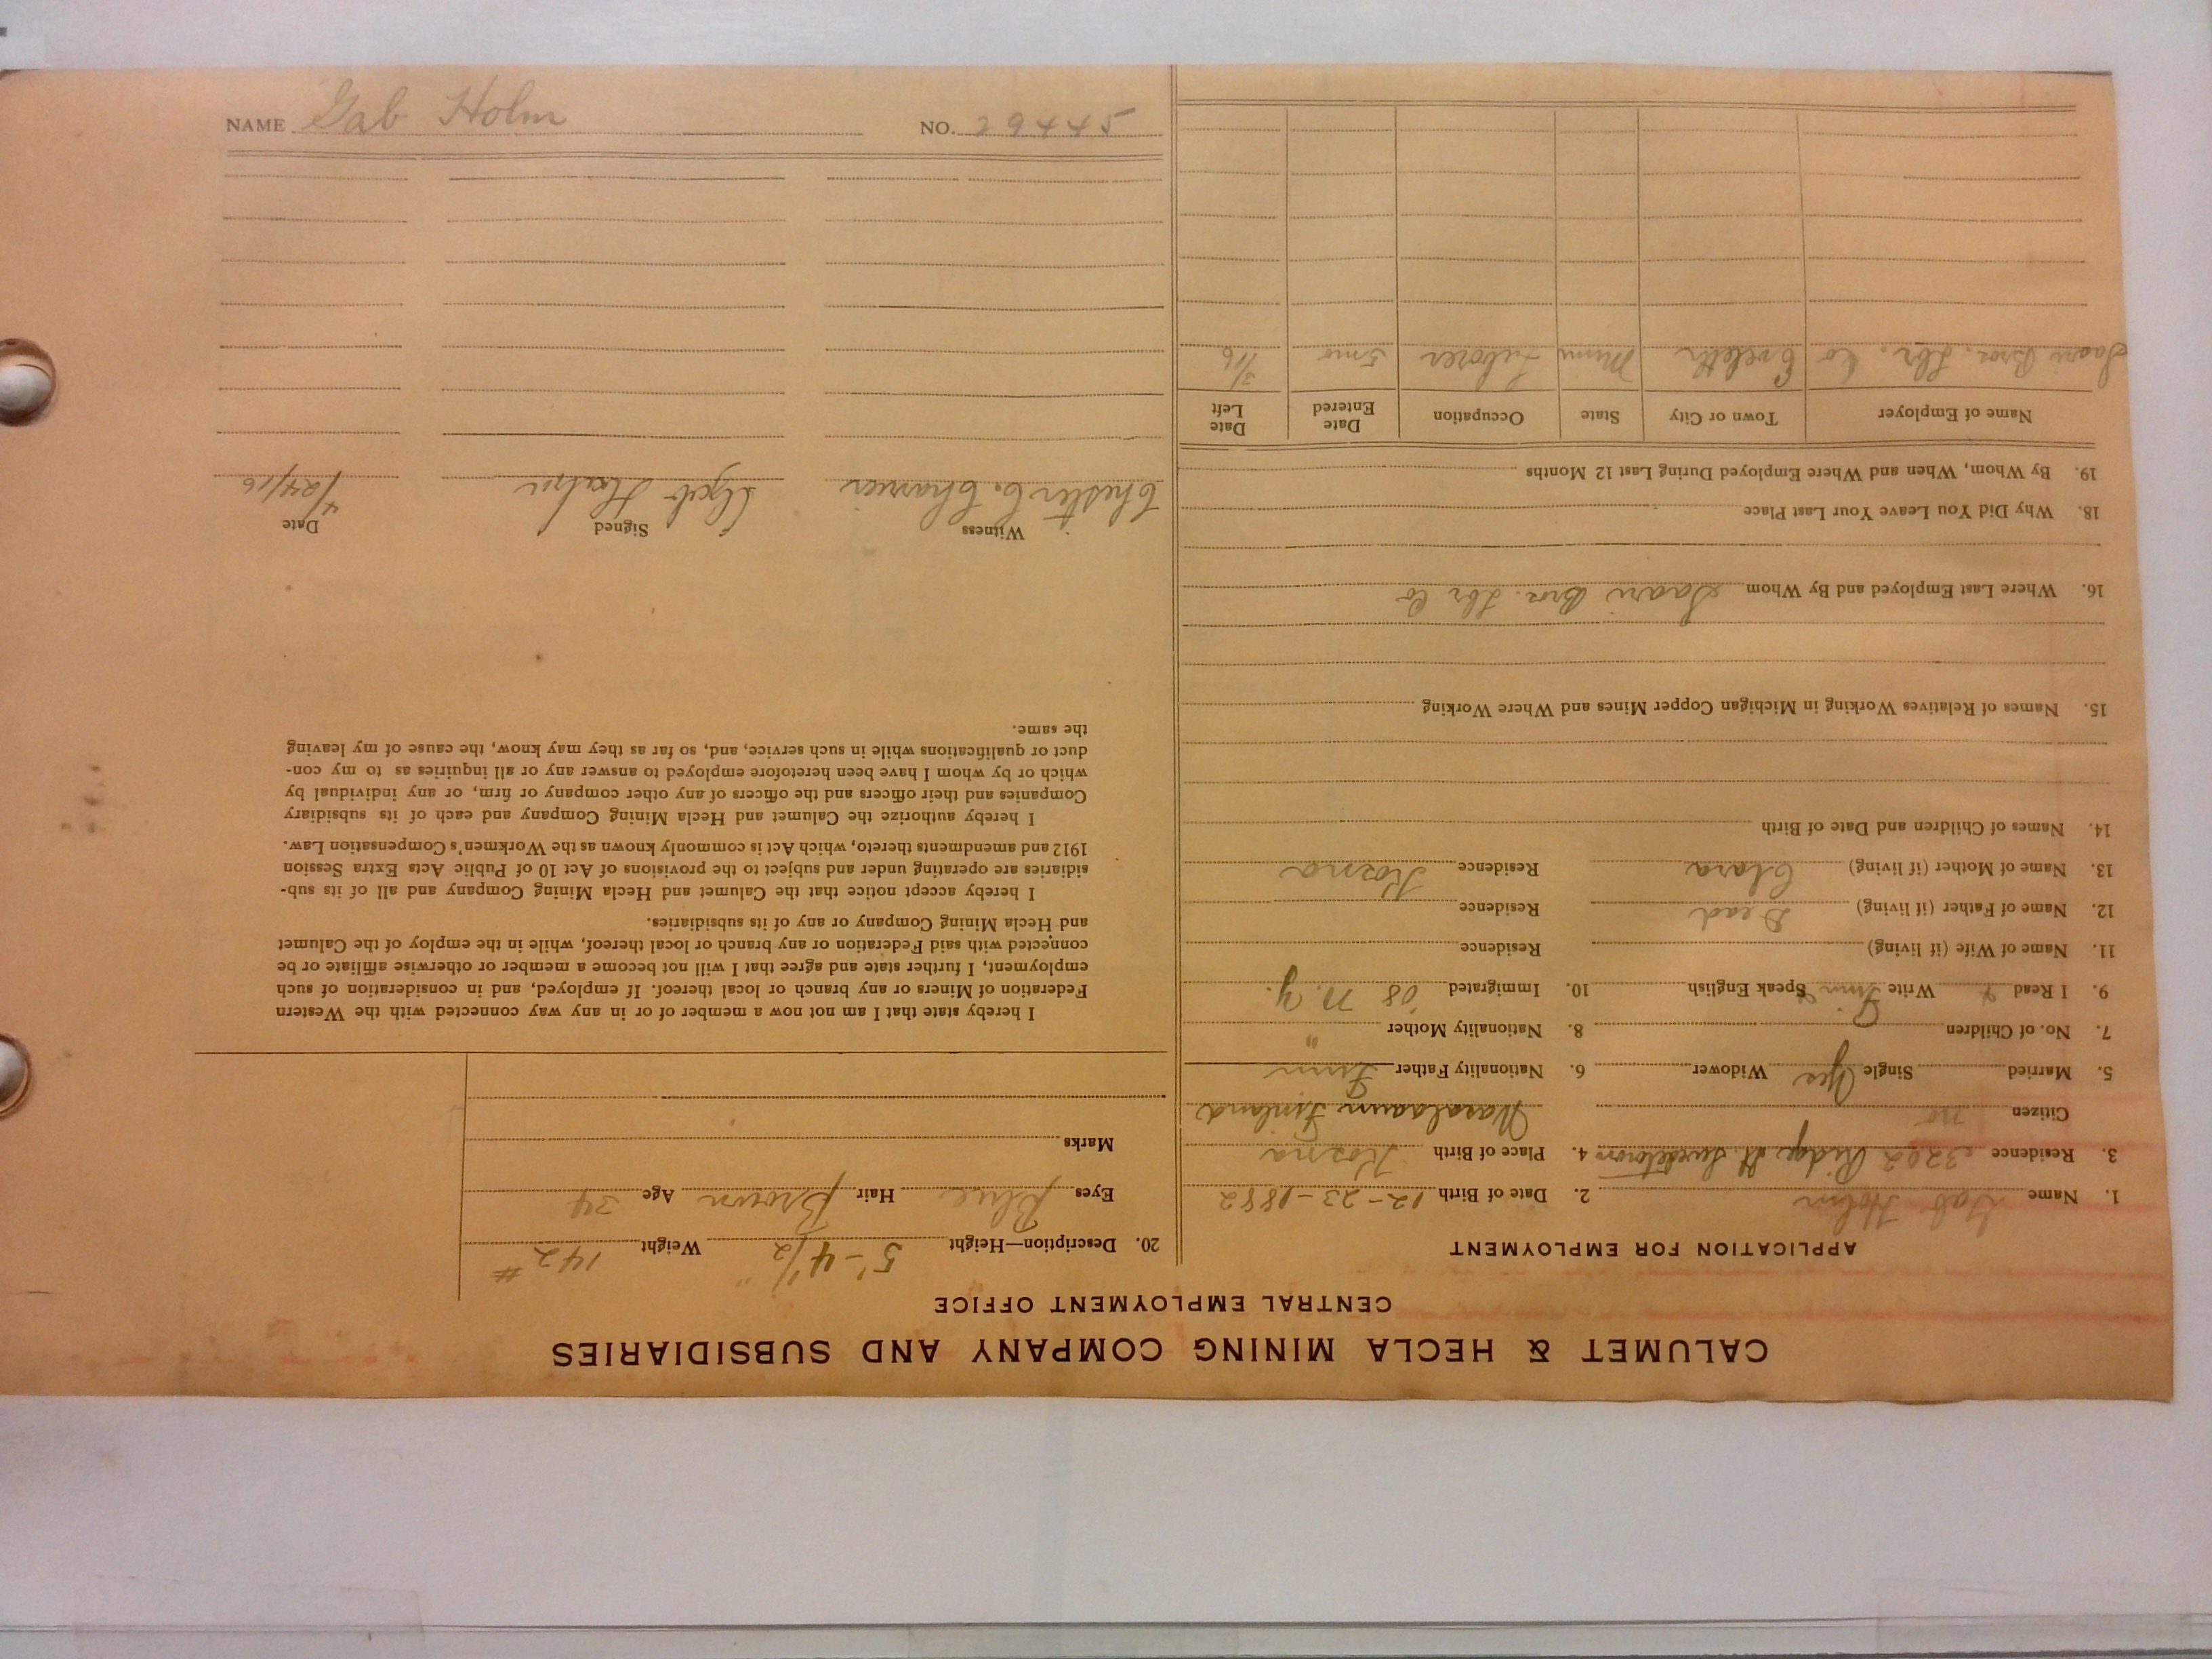 CALUMET & HECLA MINING COMPANY AND SUBSIDIARIES
CENTRAL EMPLOYMENT OFFICE
APPLICATION FOR EMPLOYMENT
1. Name Gab Holm 2. Date of Birth 12-23-1882
3. Residence 3202 Ridge St. Swedetown 4. Place of Birth Kosna
Citizen no Wasalaani Finland
5. Married Single Yes Widower 6. Nationality Father Finn
7. No. of Children 8. Nationality Mother "
9. I Read & Write Finn Speak English 10. Immigrated '08 N.Y.
11. Name of Wife (if living) Residence
12. Name of Father (if living) Dead Residence
13. Name of Mother (if living) Clara Residence Kosna
14. Names of Children and Date of Birth
15. Names of Relatives Working in Michigan Copper Mines and Where Working
16. Where Last Employed and By Whom Saari Bros. Lbr Co
18. Why Did You Leave Your Last Place
19. By Whom, When and Where Employed During Last 12 Months
Name of Employer Town or City State Occupation Date Entered Date Left
Saari Bros. Lbr. Co Eveleth Minn Laborer 5 mo 3/16
20. Description—Height 5'-4 1/2" Weight 142 #
Eyes Blue Hair Brown Age 34
Marks
I hereby state that I am not now a member of or in any way connected with the Western
Federation of Miners or any branch or local thereof. If employed, and in consideration of such
employment, I further state and agree that I will not become a member or otherwise affiliate or be
connected with said Federation or any branch or local thereof, while in the employ of the Calumet
and Hecla Mining Company or any of its subsidiaries.
I hereby accept notice that the Calumet and Hecla Mining Company and all of its sub-
sidiaries are operating under and subject to the provisions of Act 10 of Public Acts Extra Session
1912 and amendments thereto, which Act is commonly known as the Workmen's Compensation Law.
I hereby authorize the Calumet and Hecla Mining Company and each of its subsidiary
Companies and their officers and the officers of any other company or firm, or any individual by
which or by whom I have been heretofore employed to answer any or all inquiries as to my con-
duct or qualifications while in such service, and, so far as they may know, the cause of my leaving
the same.
Witness Signed Date
Chester C. 4/24/16
NAME Gab Holm NO. 29445